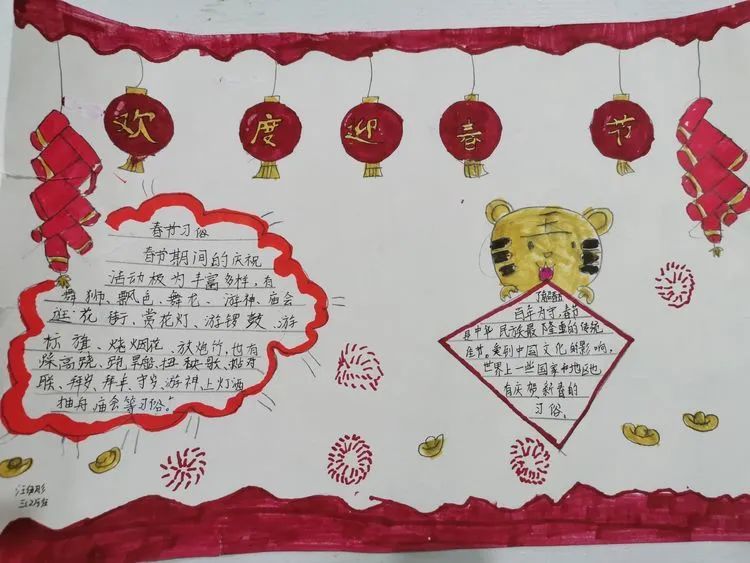 欢度迎春节
春节习俗
春节期间的庆祝
活动极为丰富多样，有
舞狮、飘色、舞龙、游神、庙会
逛花街、赏花灯、游锣鼓、游
标旗、烧烟花、放炮竹，也有
踩高跷、跑旱船、扭秧歌、贴对
联、拜岁、拜年、守岁、游神、上灯酒
抽舟庙会等习俗。
百年为守，春节
是中华民族最隆重的传统
佳节。受到中国文化的影响，
世界上一些国家和地区也
有庆贺新春的
习俗。
三